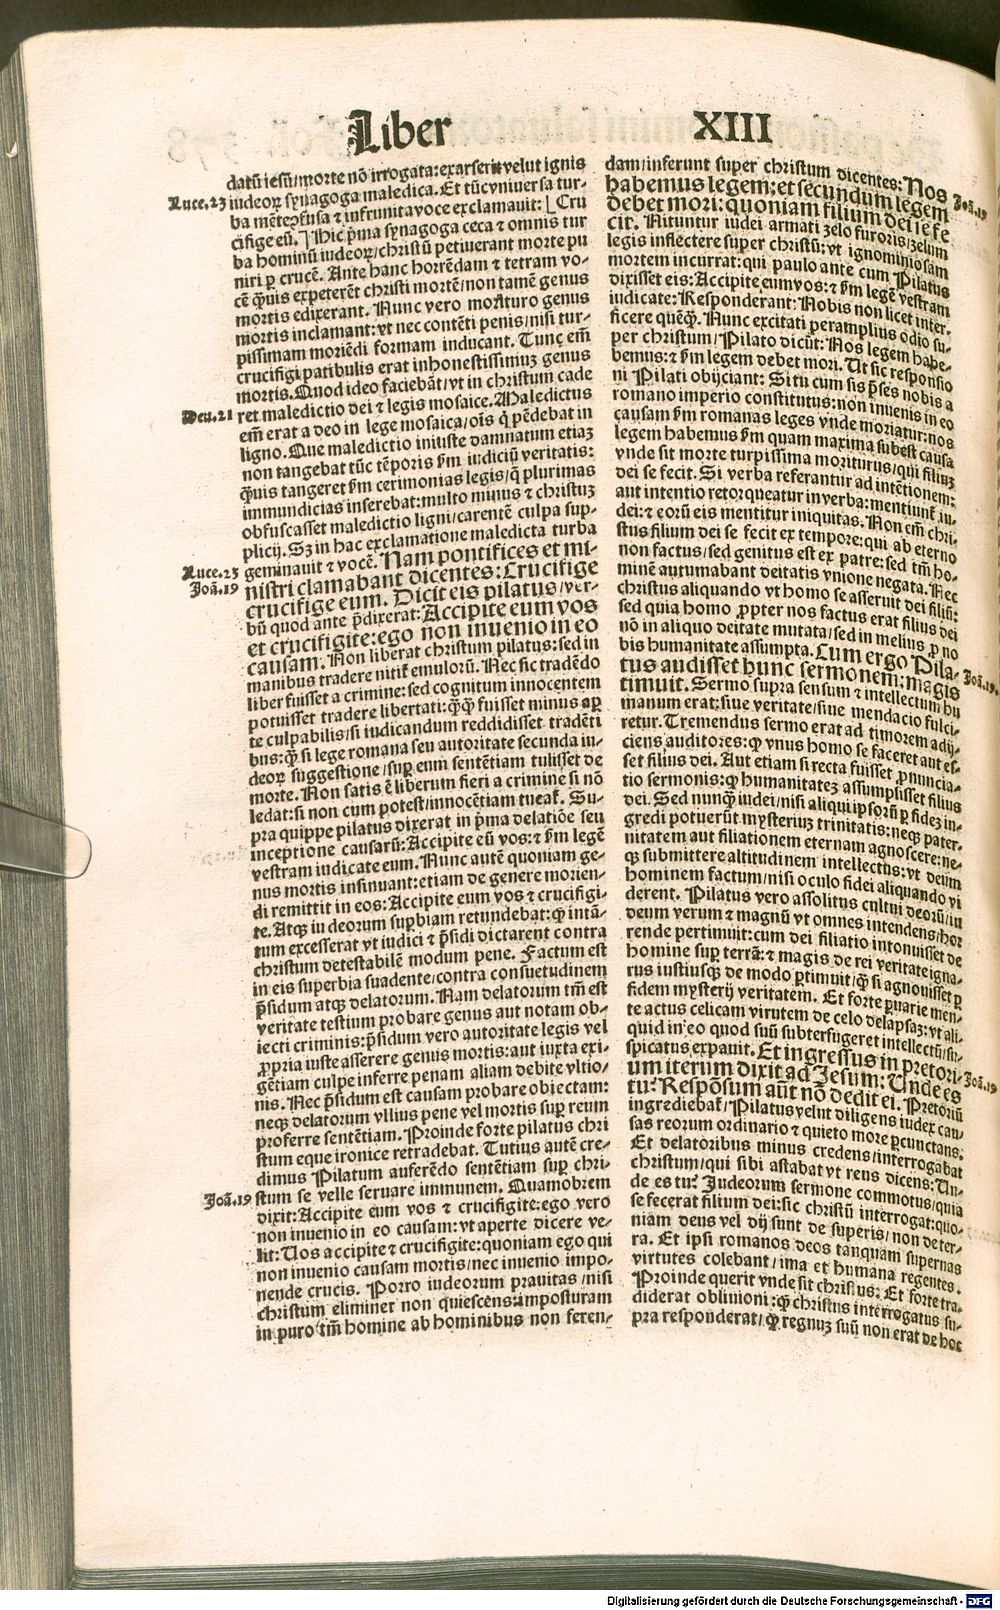 Liber XIII
datū iesū/morte nō irrogata: exarserit velut ignis
Luce.23 iudeoꝝ synagoga maledica. Et tūc vniuersa tur-
ba mēte cōfusa ⁊ infrunita voce exclamauit: Cru
cifige eū. Hic p̄ma synagoga ceca ⁊ omnis tur
ba hominū iudeoꝝ/christū petiuerant morte pu
niri p̱ crucē. Ante hanc horrēdam ⁊ tetram vo-
cē q̄uis expeterēt christi mortē/non tamē genus
mortis edixerant. Nunc vero morituro genus
mortis inclamant: vt nec contēti penis/nisi tur-
pissimam moriēdi formam inducant. Tunc em̄
crucifigi patibulis erat inhonestissimuꝫ genus
mortis. Quod ideo faciebāt/vt in christum cade
Deu.21 ret maledictio dei ⁊ legis mosaice. Maledictus
em̄ erat a deo in lege mosaica/oīs q̇ pēdebat in
ligno. Que maledictio iniuste damnatum etiaꝫ
non tangebat tūc tēporis ẜm iudiciū veritatis:
q̄uis tangeret ẜm cerimonias legis/q̄ plurimas
immundicias inserebat: multo minus ⁊ christuꝫ
obfuscasset maledictio ligni/carentē culpa sup-
plicij. Sꝫ in hac exclamatione maledicta turba
Luce.23 geminauit ⁊ vocē. Nam pontifices et mi-
Joā.19 nistri clamabant dicentes: Crucifige
crucifige eum. Dicit eis pilatus/ver-
bū quod ante p̄dixerat: Accipite eum vos
et crucifigite: ego non inuenio in eo
causam. Non liberat christum pilatus: sed in
manibus tradere nitit᷑ emulorū. Nec sic tradēdo
liber fuisset a crimine: sed cognitum innocentem
potuisset tradere libertati: q̄q̄ fuisset minus aꝑ
te culpabilis/si iudicandum reddidisset tradēti
bus: q̄ꝫ si lege romana seu autoritate secunda iu-
deoꝝ suggestione/sup̱ eum sentētiam tulisset de
morte. Non satis ē liberum fieri a crimine si nō
ledat: si non cum potest/innocētiam tueat᷑. Su-
pra quippe pilatus dixerat in p̄ma delatiōe seu
inceptione causarū: Accipite eū vos: ⁊ ẜm legē
vestram iudicate eum. Nunc autē quoniam ge-
nus mortis insinuant: etiam de genere morien-
di remittit in eos: Accipite eum vos ⁊ crucifigi-
te. Atqꝫ iudeorum sup̱biam retundebat: q̄ intā-
tum excesserat vt iudici ⁊ p̄sidi dictarent contra
christum detestabilē modum pene. Factum est
in eis superbia suadente/contra consuetudinem
p̄sidum atqꝫ delatorum. Nam delatorum tm̄ est
veritate testium probare genus aut notam ob-
iecti criminis: p̄sidum vero autoritate legis vel
ꝓpria iuste asserere genus mortis: aut iuxta exi-
gētiam culpe inferre penam aliam debite vltio-
nis. Nec p̄sidum est causam probare obiectam:
neqꝫ delatorum vllius pene vel mortis sup̱ reum
proferre sentētiam. Proinde forte pilatus chri
stum eque ironice retradebat. Tutius autē cre-
dimus Pilatum auferēdo sentētiam sup̱ chri-
Joā.19 stum se velle seruare immunem. Quamobrem
dixit: Accipite eum vos ⁊ crucifigite: ego vero
non inuenio in eo causam: vt aperte dicere ve-
lit: Uos accipite ⁊ crucifigite: quoniam ego qui
non inuenio causam mortis/nec inuenio impo-
nende crucis. Porro iudeorum prauitas/nisi
christum eliminet non quiescens: imposturam
in puro tm̄ homine ab hominibus non feren-
dam/inferunt super christum dicentes: Nos
habemus legem: et secundum legem Joā.19
debet mori: quoniam filium dei se fe
cit. Nituntur iudei armati zelo furoris/zelum
legis inflectere super christū: vt ignominiosam
mortem incurrat: qui paulo ante cum Pilatus
dixisset eis: Accipite eum vos: ⁊ ẜm legē vestram
iudicate: Responderant: Nobis non licet inter-
ficere quēq̄. Nunc excitati peramplius odio su-
per christum/Pilato dicūt: Nos legem habe-
bemus: ⁊ ẜm legem debet mori. Ut sic responsio
ni Pilati obijciant: Si tu cum sis p̄ses nobis a
romano imperio constitutus: non inuenis in eo
causam ẜm romanas leges vnde moriatur: nos
legem habemus ẜm quam maxima subest causa
vnde sit morte turpissima moriturus/qui filiuꝫ
dei se fecit. Si verba referantur ad intētionem:
aut intentio retorqueatur in verba: mentiunt᷑ iu-
dei: ⁊ eorū eis mentitur iniquitas. Non em̄ chri-
stus filium dei se fecit ex tempore: qui ab eterno
non factus/sed genitus est ex patre: sed tm̄ ho-
minē autumabant deitatis vnione negata. Nec
christus aliquando vt homo se asseruit dei filiū:
sed quia homo ꝓpter nos factus erat filius dei
nō in aliquo deitate mutata/sed in melius ꝓ no
bis humanitate assumpta. Cum ergo Pila-
tus audisset hunc sermonem: magis Joā.19.
timuit. Sermo supra sensum ⁊ intellectum hu
manum erat: siue veritate/siue mendacio fulci-
retur. Tremendus sermo erat ad timorem adij-
ciens auditores: ꝙ vnus homo se faceret aut es-
set filius dei. Aut etiam si recta fuisset ꝓnuncia-
tio sermonis: ꝙ humanitateꝫ assumpsisset filius
dei. Sed nunq̄ iudei/nisi aliqui ipsorū p̱ fidez in-
gredi potuerūt mysteriuꝫ trinitatis: neqꝫ pater-
nitatem aut filiationem eternam agnoscere: ne-
qꝫ submittere altitudinem intellectus: vt deum
hominem factum/nisi oculo fidei aliquando vi
derent. Pilatus vero assolitus cultui deorū/in
deum verum ⁊ magnū vt omnes intendens/hor
rende pertimuit: cum dei filiatio intonuisset de
homine sup̱ terrā: ⁊ magis de rei veritate igna-
rus iustiusqꝫ de modo p̱timuit/q̄ꝫ si agnouisset p̱
fidem mysterij veritatem. Et forte p̱uarie men-
te actus celicam virutem de celo delapsaꝫ: vt ali-
quid in eo quod suū subterfugeret intellectū/su-
spicatus expauit. Et ingressus in pretori- Joā.19
um iterum dixit ad Jesum: Unde es
tu? Respōsum aūt nō dedit ei. Pretoriū
ingrediebat᷑/Pilatus velut diligens iudex cau-
sas reorum ordinario ⁊ quieto more p̱cunctans.
Et delatoribus minus credens/interrogabat
christum/qui sibi astabat vt reus dicens: Un-
de es tu? Judeorum sermone commotus/quia
se fecerat filium dei: sic christū interrogat: quo-
niam deus vel dij sunt de superis/non de ter-
ra. Et ipsi romanos deos tanquam supernas
virtutes colebant/ima et humana regentes.
Proinde querit vnde sit christus: Et forte tra-
diderat obliuioni: q̄ christus interrogatus su-
pra responderat/ꝙ regnuꝫ suū non erat de hoc
Digitalisierung gefördert durch die Deutsche Forschungsgemeinschaft - DFG